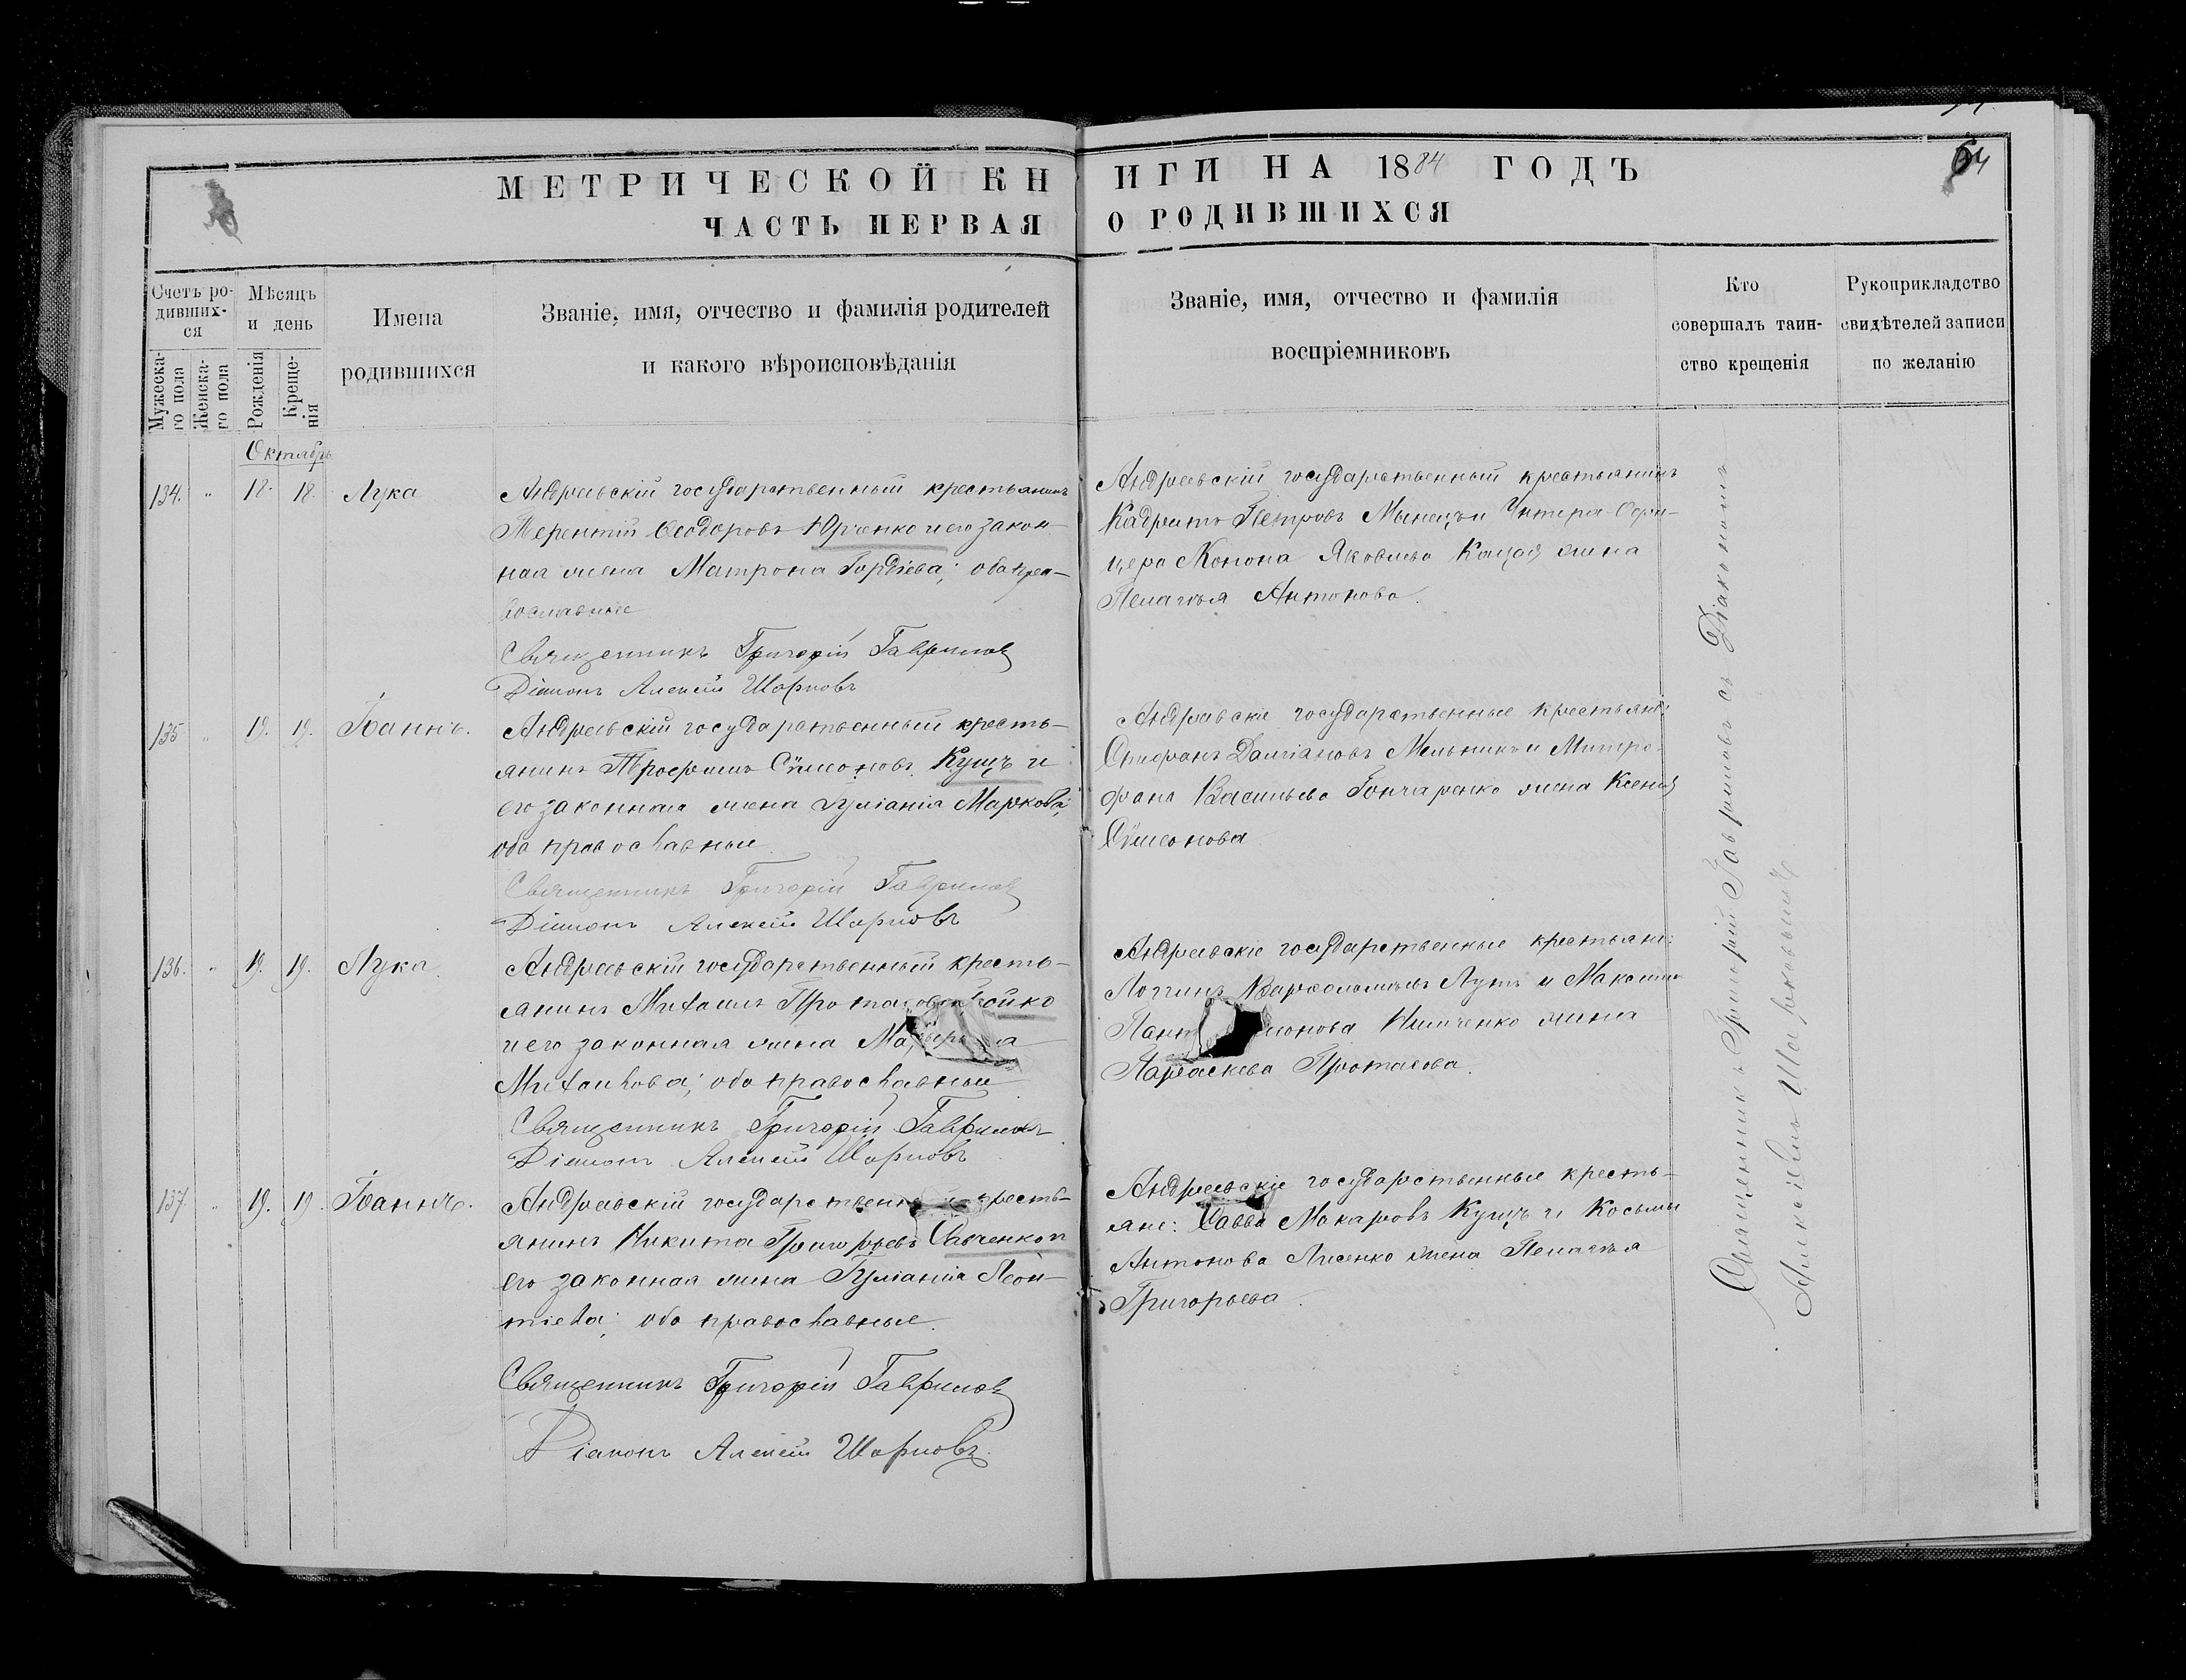 МЕТРИЧЕСКОЙ КНИГИ НА 1884 ГОДЪ
64
ЧАСТЬ ПЕРВАЯ О РОДИВШИХСЯ
Счетъ родившихся
Мужескаго пола
Женскаго пола
Мѣсяцъ и день
Рожденія
Крещенія
Имена
родившихся
Званіе, имя, отчество и фамилія родителей
и какого вѣроисповѣданія
Званіе, имя, отчество и фамилія
воспріемниковъ
Кто
совершалъ таин-
ство крещенія
Рукоприкладство
свидѣтелей записи
по желанію
Октябрь
134. " 18. 18. Лука
Андреевскій государственный крестьянинъ
Терентій Ѳеодоровъ Юрченко и его закон-
ная жена Матрона Гордіева; оба пра-
вославные
Священникъ Григорій Гавриловъ
Діаконъ Алексѣй Шарковъ
Андреевскій государственный крестьянинъ
Петровъ и Унтеръ-Офи-
цера Конона Яковлева жена
Пелагія Антонова.
135 " 19. 19. Іоаннъ.
Андреевскій государственный кресть-
янинъ Трофимъ Сѵмеоновъ Кущъ и
его законная жена Іуліанія Маркова;
оба православные
Священникъ Григорій Гавриловъ
Діаконъ Алексѣй Шарковъ
Андреевскіе государственные крестьяне:
Даміановъ Мельникъ и Митро-
фана Васильева Гончаренко жена Ксенія
Сѵмеонова
136. " 19. 19. Лука.
Андреевскій государственный кресть-
янинъ Михаилъ
и его законная жена
Михаилова; оба православные
Священникъ Григорій Гавриловъ
Діаконъ Алексѣй Шарковъ
Андреевскіе государственные крестьяне:
Логгинъ Варѳоломеевъ и Максима
жена
Параскева Протасова.
137. " 19. 19. Іоаннъ.
Андреевскій государственный кресть-
янинъ Никита Григорьевъ Савченко и
его законная жена Іуліанія Леон-
тіева; оба православные.
Священникъ Григорій Гавриловъ
Діаконъ Алексѣй Шарковъ.
Андреевскіе государственные кресть-
яне: Савва Макаровъ Кущъ и Косьмы
Антонова Лисенко жена Пелагія
Григорьева.
Священникъ Григорій Гавриловъ съ Діакономъ
Алексіемъ Шарковымъ